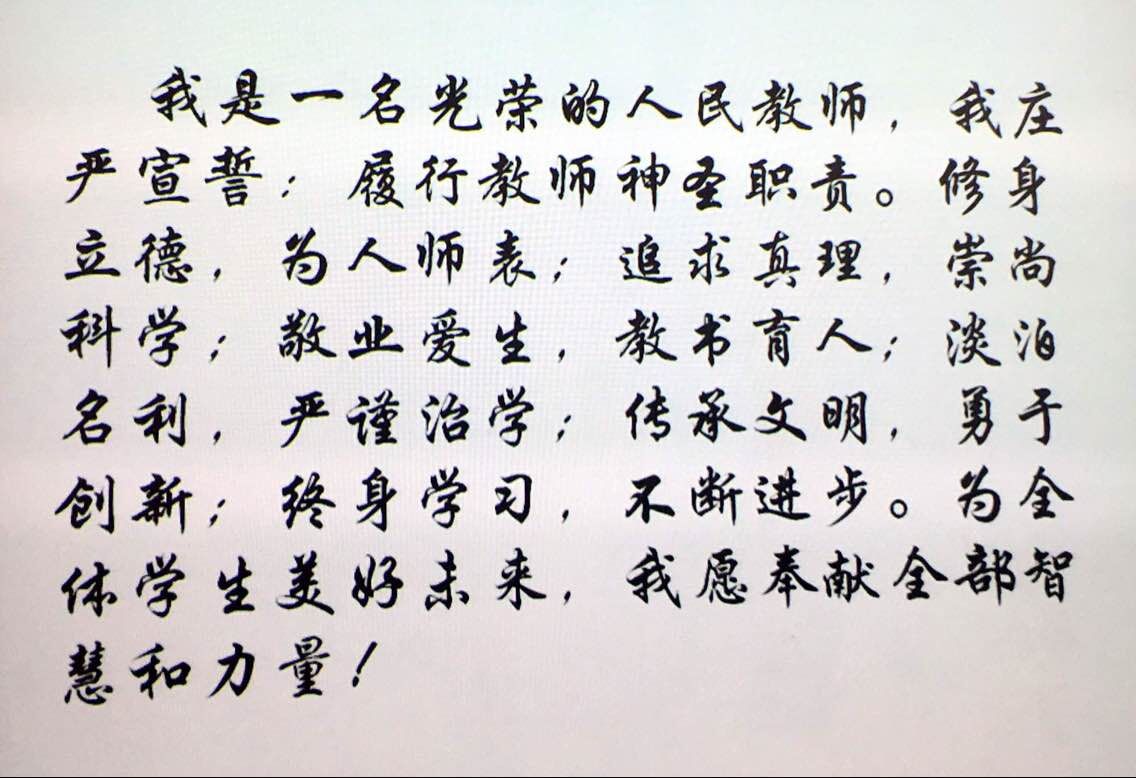 我是一名光荣的人民教师，我庄
严宣誓：履行教师神圣职责。修身
立德，为人师表；追求真理，崇尚
科学；敬业爱生，教书育人；淡泊
名利，严谨治学；传承文明，勇于
创新；终身学习，不断进步。为全
体学生美好未来，我愿奉献全部智
慧和力量！